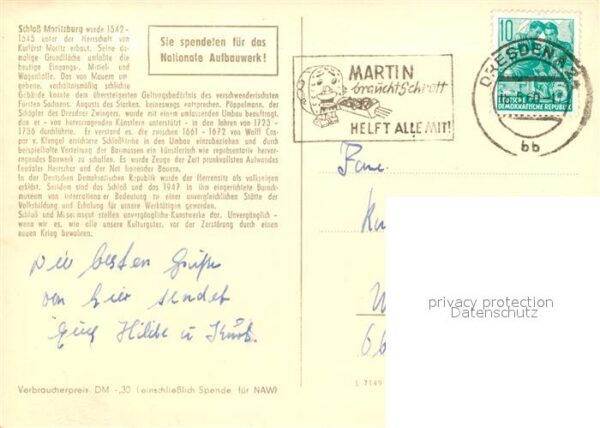 Schloß Moritzburg wurde 1542-
1545 unter der Herrschaft von
Kurfürst Moritz erbaut. Seine da-
malige Grundfläche umfaßte die
heutige Eingangs-, Mittel- und
Wagenhalle. Das von Mauern um-
gebene, verhältnismäßig schlichte
Gebäude konnte dem übersteigerten Geltungsbedürfnis des verschwenderischsten
Fürsten Sachsens, Augusts des Starken, keineswegs entsprechen. Pöppelmann, der
Schöpfer des Dresdner Zwingers, wurde mit einem umfassenden Umbau beauftragt,
den er - von hervorragenden Künstlern unterstützt - in den Jahren von 1723 -
1736 durchführte. Er verstand es, die zwischen 1661 - 1672 von Wolff Cas-
par v. Klengel errichtete Schloßkirche in den Umbau einzubeziehen und durch
beispielhafte Verteilung der Baumassen ein künstlerisch wie repräsentativ hervor-
ragendes Bauwerk zu schaffen. Es wurde Zeuge der Zeit prunkvollsten Aufwandes
feudaler Herrscher und der Not harender Bauern.
In der Deutschen Demokratischen Republik wurde der Herrensitz als volkseigen
erklärt. Seitdem sind das Schloß und das 1947 in ihm eingerichtete Barock-
museum von internationaler Bedeutung zu einer unvergleichlichen Stätte der
Volksbildung und Erholung für unsere Werktätigen geworden.
Schloß und Museumsgut stellen unvergängliche Kunstwerke dar. Unvergänglich -
wenn wir es, wie alle unsere Kulturgüter, vor der Zerstörung durch einen
neuen Krieg bewahren.
Sie spendeten für das
Nationale Aufbauwerk!
MARTIN
braucht Schrott
HELFT ALLE MIT!
10
DEUTSCHE
DEMOKRATISCHE REPUBLIK
DRESDEN A
bb
Die besten Grüße
von hier sendet
Euch Hilde u Kurt.
privacy protection
Datenschutz
Verbraucherpreis DM -,30 (einschließlich Spende für NAW)
L 7149